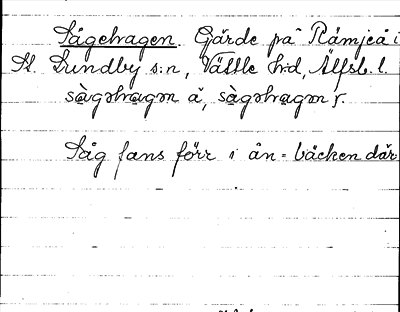 Sågehagen. Gärde på Råmjeå i
St. Lundby s:n, Vättle h:d, Älfsb. l.
sàgəhagən å, sàgəhagən r.
Såg fans förr i ån = bäcken där